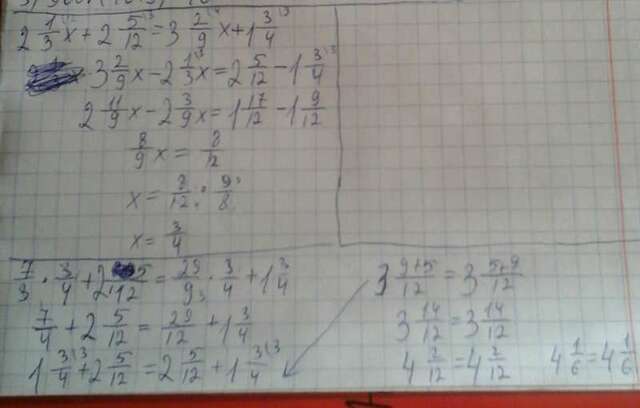 2 1/3 x + 2 5/12 = 3 2/9 x + 1 3/4
3 2/9 x - 2 1/3 x = 2 5/12 - 1 3/4
2 11/9 x - 2 3/9 x = 1 17/12 - 1 9/12
8/9 x = 8/12
x = 8/12 : 9/8
x = 3/4
7/3 · 3/4 + 2 5/12 = 29/9 · 3/4 + 1 3/4
7/4 + 2 5/12 = 29/12 + 1 3/4
1 3/4 + 2 5/12 = 2 5/12 + 1 3/4
3 9+5/12 = 3 5+9/12
3 14/12 = 3 14/12
4 2/12 = 4 2/12 4 1/6 = 4 1/6